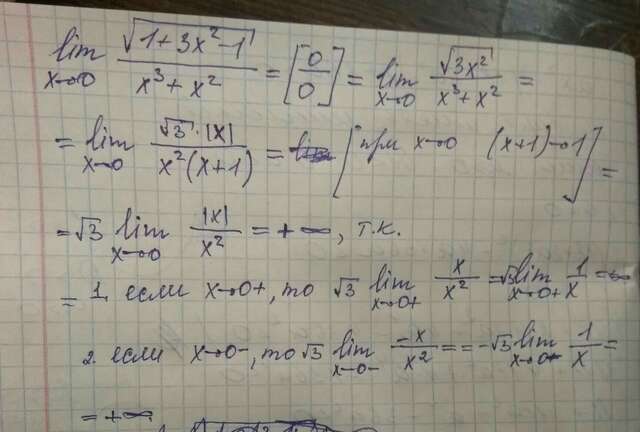 lim x→0 √(1+3x²-1) / (x³+x²) = [0/0] = lim x→0 √(3x²) / (x³+x²) =
= lim x→0 √3·|x| / (x²(x+1)) = [при x→0 (x+1)→1] =
= √3 lim x→0 |x| / x² = +∞, т.к.
= 1. если x→0+, то √3 lim x→0+ x/x² = √3 lim x→0+ 1/x = +∞
2. если x→0-, то √3 lim x→0- -x/x² = = -√3 lim x→0- 1/x =
= +∞